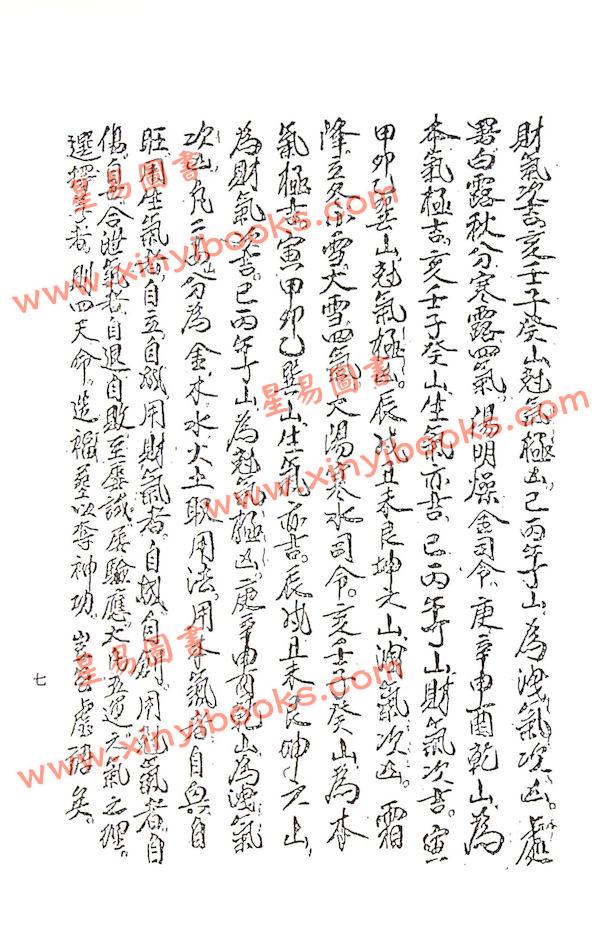 財氣次吉。亥壬子癸山尅氣極凶。巳丙午丁山為洩氣次凶。處
暑白露秋分寒露四氣。陽明燥金司令。庚辛申酉乾山為
本氣極吉。亥壬子癸山生氣亦吉。巳丙午丁山財氣次吉。寅
甲卯乙巽山尅氣極凶。辰戌丑未艮坤之山洩氣次凶。霜
降立冬小雪大雪四氣。太陽寒水司令。亥壬子癸山為本
氣極吉。寅甲卯乙巽山生氣亦吉。辰戌丑未艮坤之山
為財氣次吉。巳丙午丁山為尅氣極凶。庚辛申酉乾山為洩氣
次凶。凡二山分為金木水火土取用法。用本氣者自興自
旺。用生氣者。自立自成。用財氣者。自成自創。用尅氣者。自
傷自害。合洩氣者。自退自敗。至歷試屢驗應。大開五運六氣之理。
選擇筆者。則四天命。造福塟以奪神功。豈云虛語矣。
七
星易圖書
www.xinyibooks.com
星易圖書
www.xinyibooks.com
星易圖書
www.xinyibooks.com